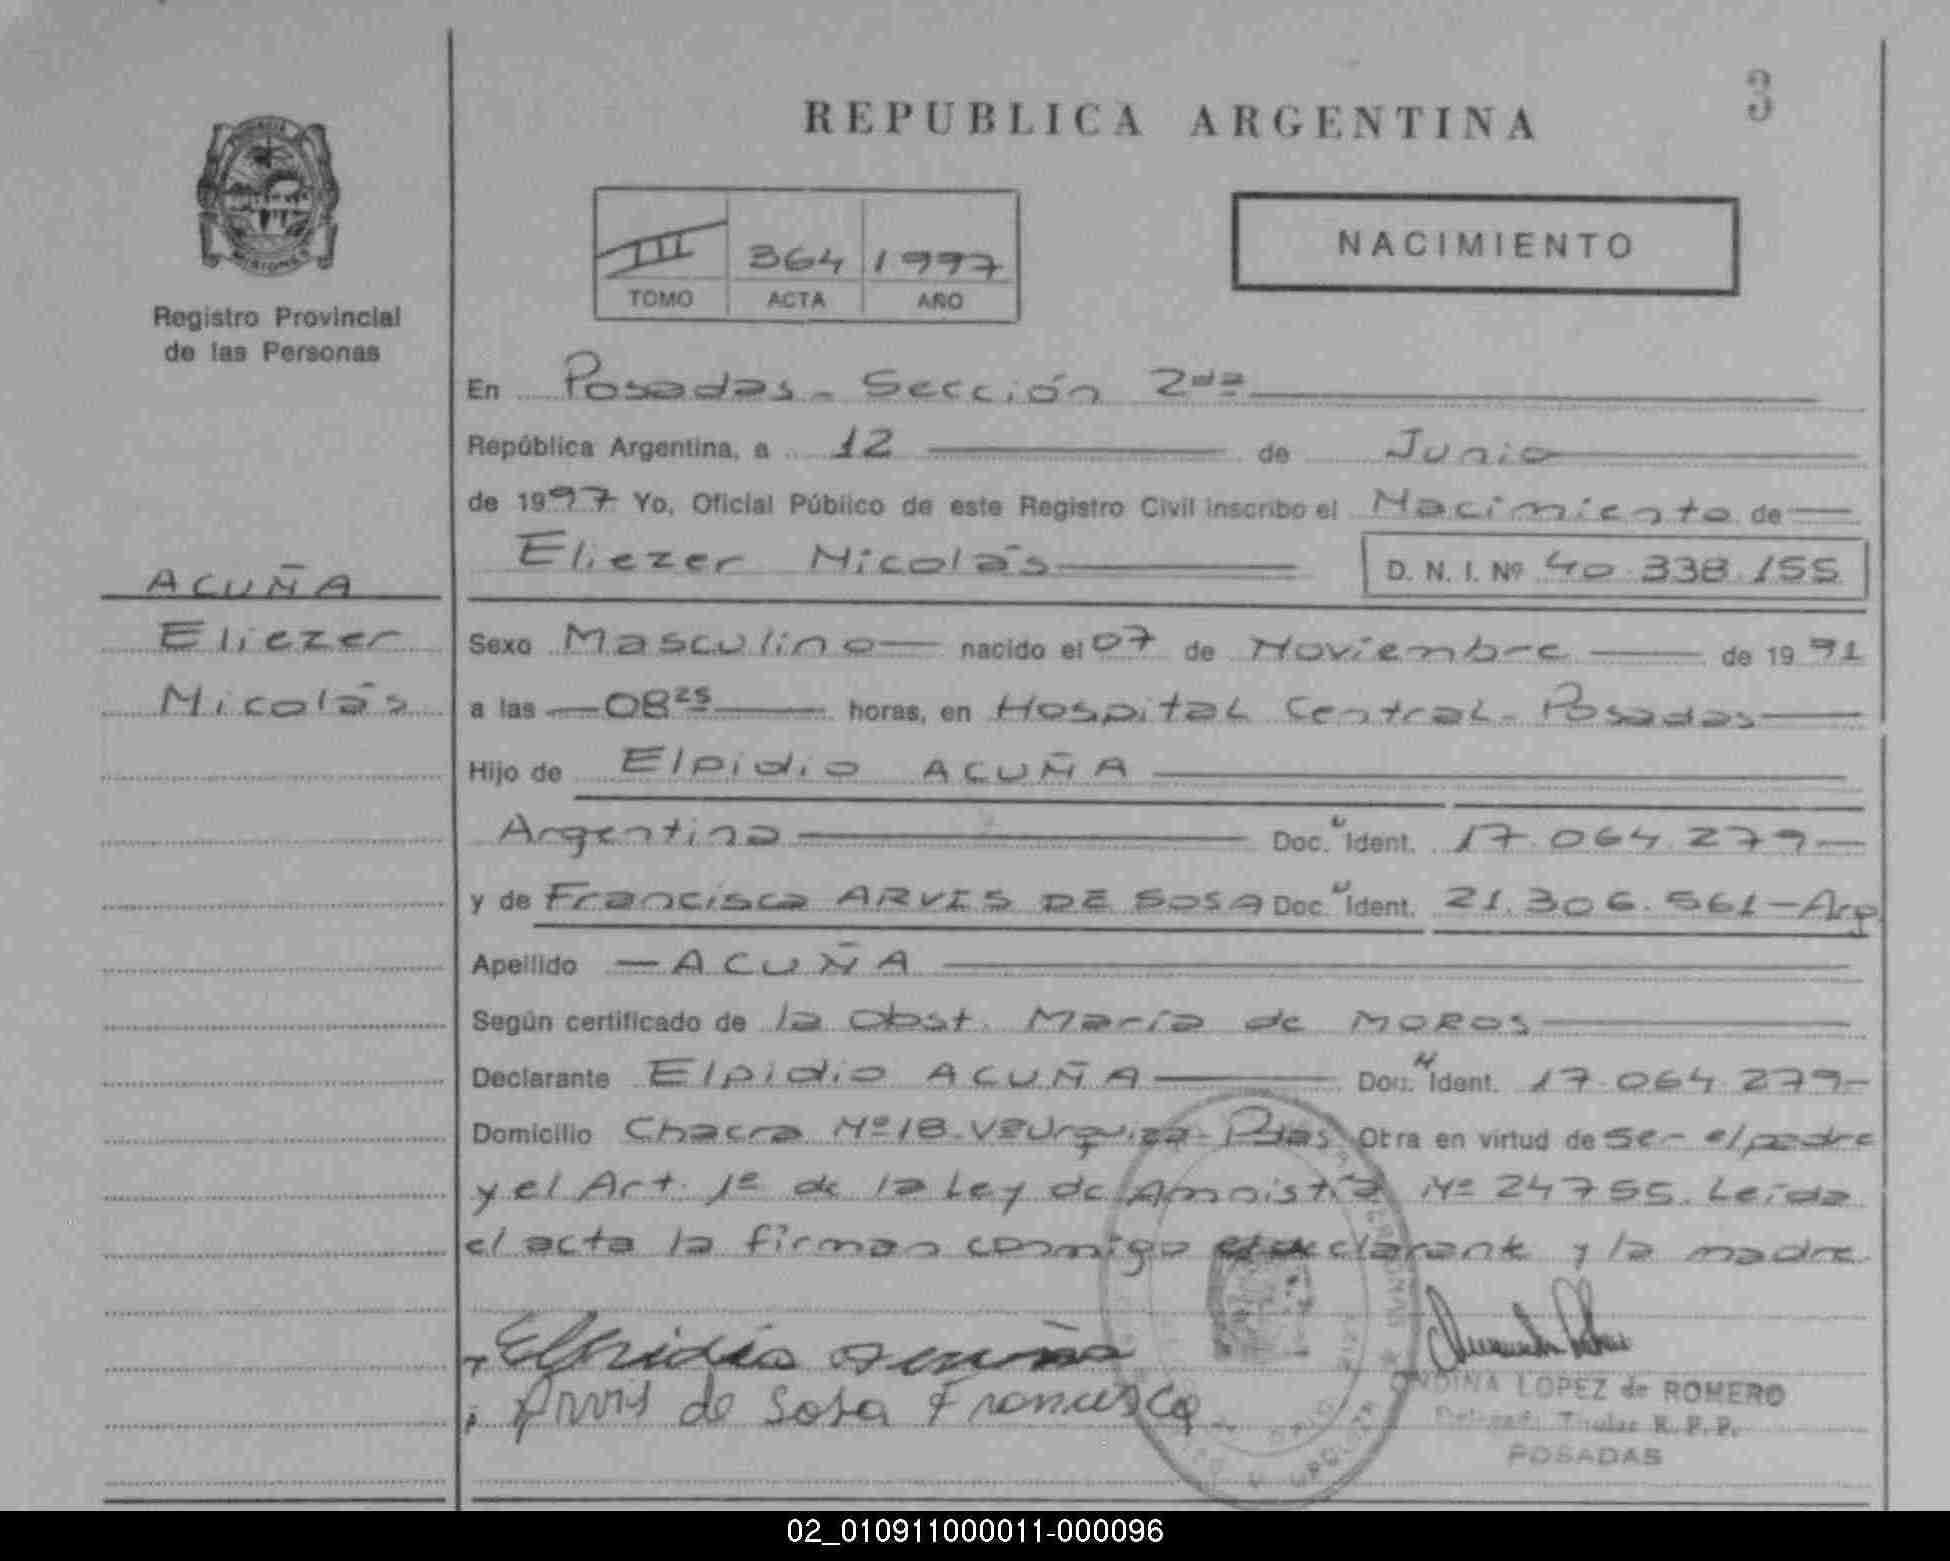 REPUBLICA ARGENTINA
3
MISIONES
Registro Provincial
de las Personas
III 364 1997
TOMO ACTA AÑO
NACIMIENTO
En Posadas - Sección 2da
República Argentina, a 12 de Junio
de 1997 Yo, Oficial Público de este Registro Civil inscribo el Nacimiento de
Eliezer Nicolás D. N. I. Nº 40.338.155
ACUÑA
Eliezer
Nicolás
Sexo Masculino nacido el 07 de Noviembre de 1991
a las 08 25 horas, en Hospital Central - Posadas
Hijo de Elpidio ACUÑA
Argentina Doc. N Ident. 17.064.279
y de Francisca ARVIS DE SOSA Doc. N Ident. 21.306.561 - Arg
Apellido ACUÑA
Según certificado de la Obst. María de MOROS
Declarante Elpidio ACUÑA Doc. N Ident. 17.064.279
Domicilio Chacra Nº 18 - Va Urquiza - Pdas Otra en virtud de ser el padre
y el Art. 1º de la Ley de Amnistía Nº 24755. Leída
el acta la firman conmigo el declarante y la madre
Elpidio Acuña
Arvis de Sosa Francisca
LOPEZ de ROMERO
Titular R. P. P.
POSADAS
02_010911000011-000096